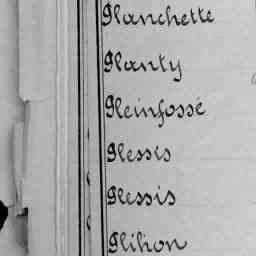 Planchette
Planty
Pleinfossé
Plessis
Plessis
Plihon